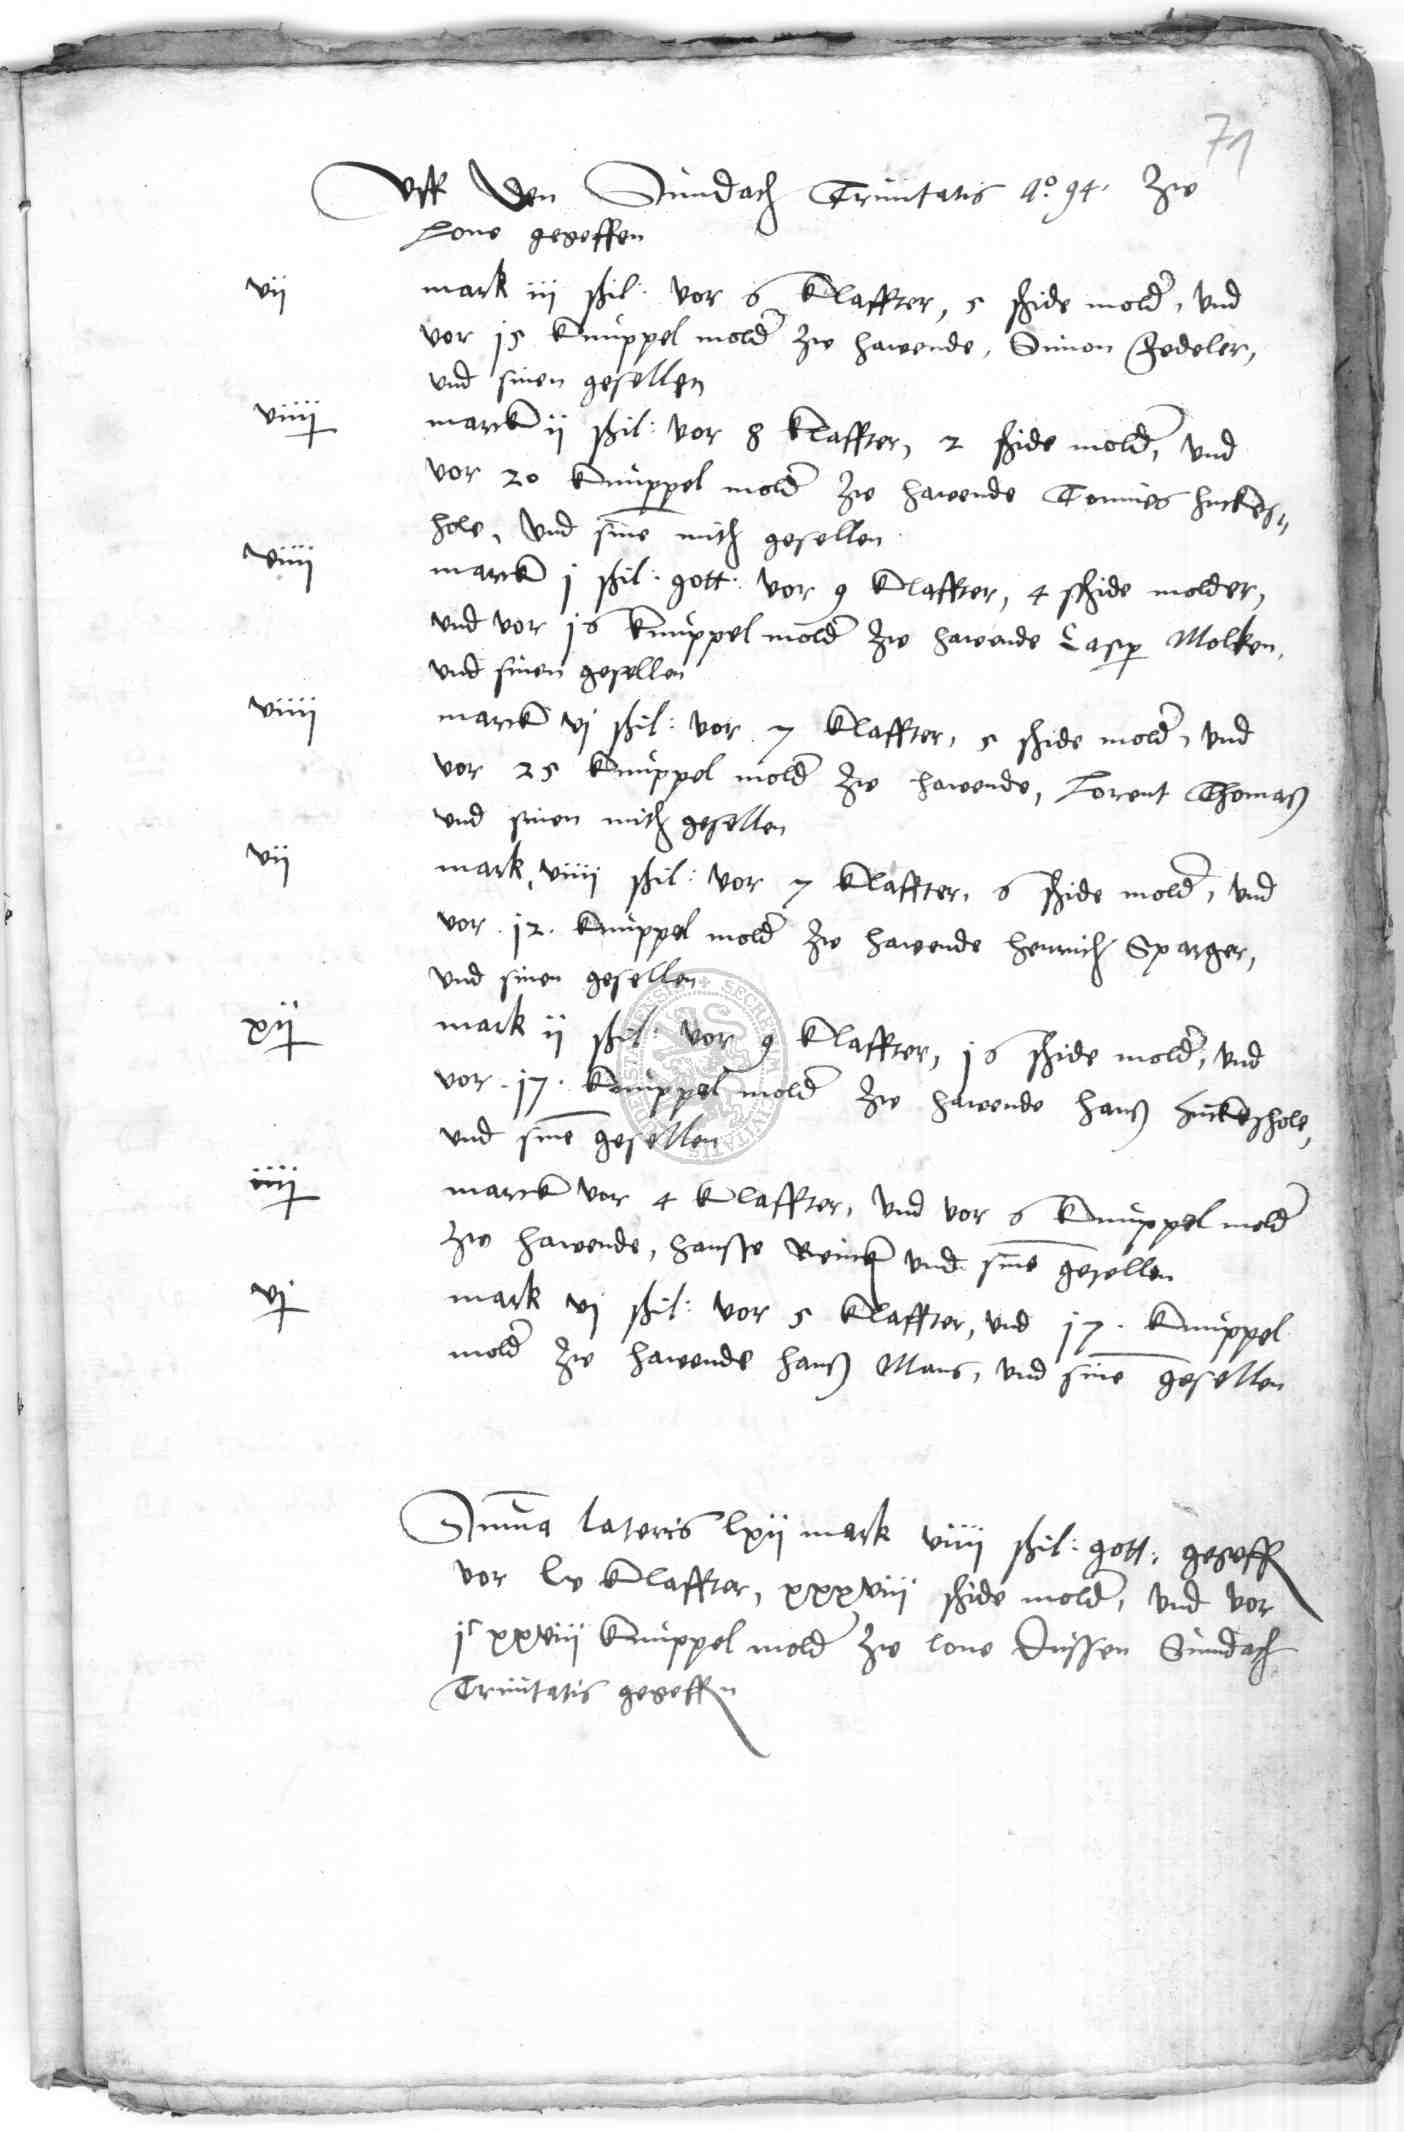 71
Uff den Sundach Trinitatis Ao. 94. zw
Lone gegeffen
vii mark iii shil: vor 6 Klaffter, 5 shide mold, und
vor 15 knuppel mold zw hawende, Simon Fedeler,
und sinen gesellen
viiij marck ii shil: vor 8 klaffter, 2 shide mold, und
vor 20 knuppel mold zw hawende Tonnies huckes,,
hole, und sine mith gesellen
viiij marck j shil: gott: vor 9 Klaffter, 4 shide molder,
und vor 16 knuppel mold zw hawende Casp Molken,
und sinen gesellen
viiij marck vj shil: vor 7 Klaffter, 5 shide mold, und
vor 25 knuppel mold zw hawende, Lorent Thomas
und sinen mith gesellen
vii mark, viiij shil: vor 7 klaffter, 6 shide mold, und
vor .12. knuppel mold zw hawende Henrich Sparger,
und sinen gesellen
xij mark ii shil: vor 9 klaffter, 16 shide mold, und
vor .17. knuppel mold zw hawende hans huckeshole,
und sine gesellen
iiij marck vor 4 Klaffter, und vor 6 knuppel mold
zw hawende, Hansse Reinck und sine gesellen
vj mark vj shil: vor 5 klaffter, und 17. knuppel
mold zw hawende hans Mans, und sine gesellen
Suma lateris lxii mark viiij shil: gott: gegeff
vor lv Klaffter, xxxviii shide mold, und vor
jc xxviii knuppel mold zw lone dussen Sundach
Trinitatis gegeffn